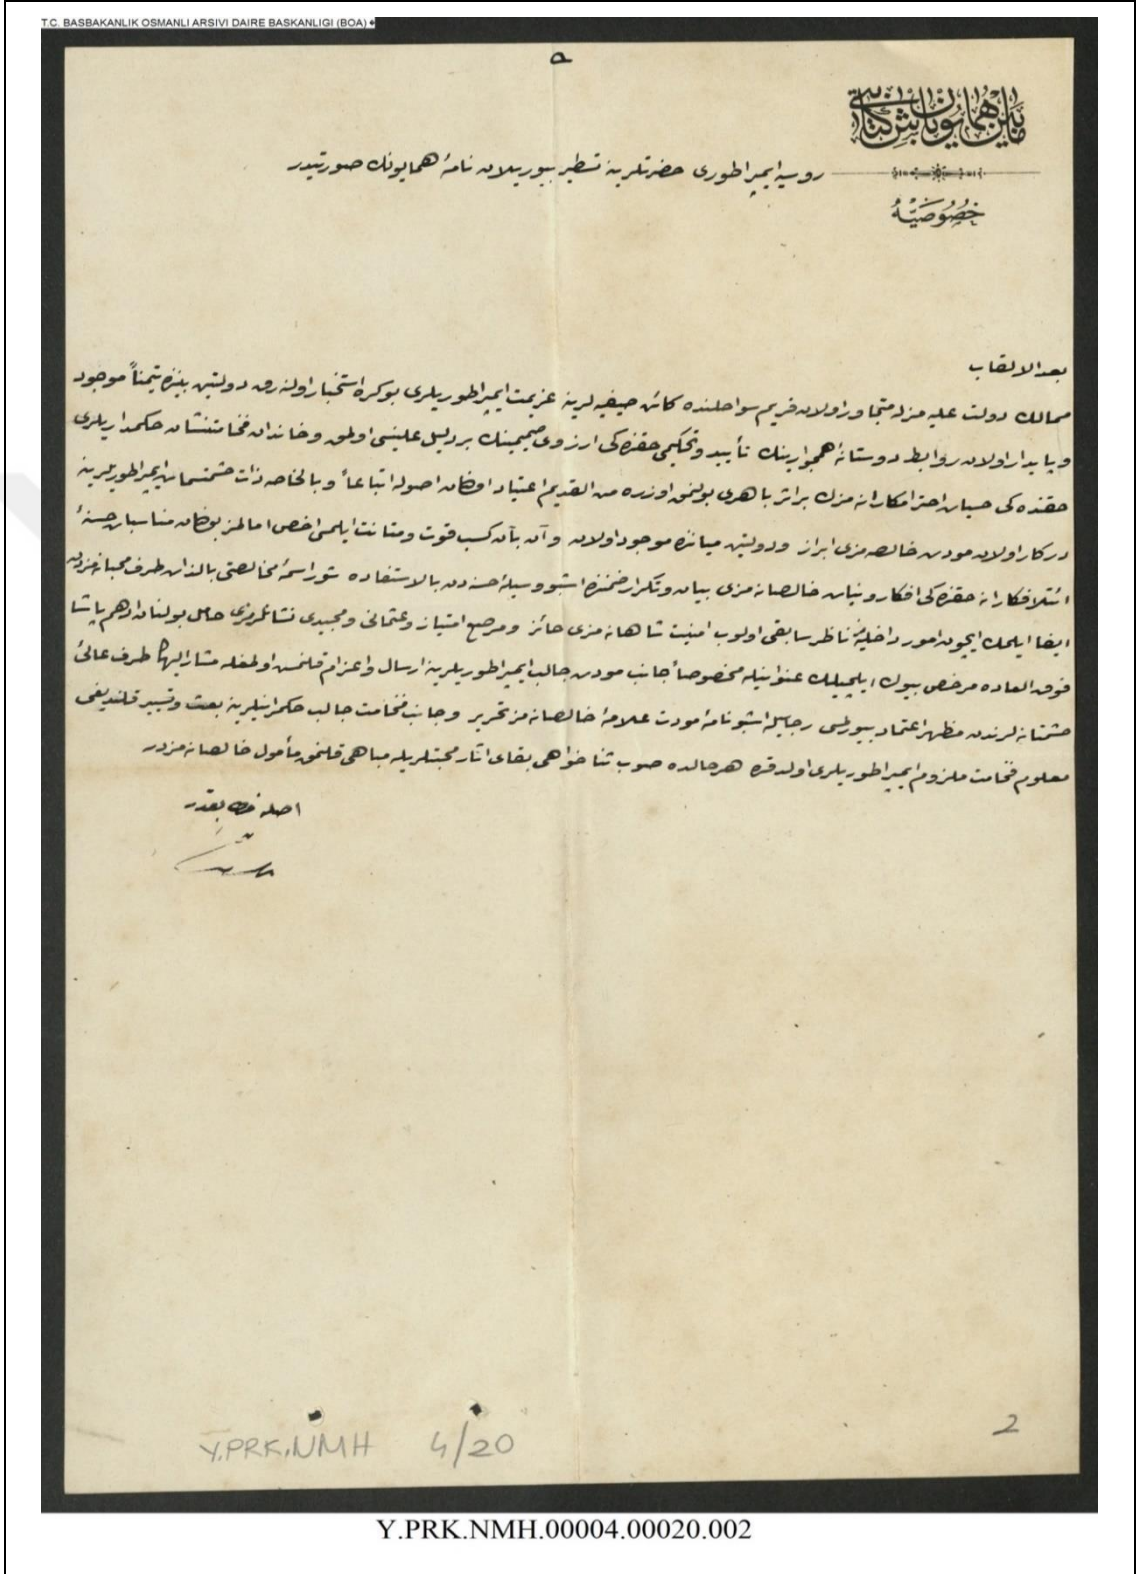 T.C. BASBAKANLIK OSMANLI ARSIVI DAIRE BASKANLIGI (BOA)
مابین همایون باش کتابتی
خصوصیه
روسیه ایمپراطوری حضرتلرینه تسطیر بیوریلان نامۀ همایونك صورتیدر
بعد الالقاب
ممالك دولت علیه مزله متجاور اولان قریم سواحلنده کائن صیفیه لرینه عزیمت ایمپراطوریلری بوکره استخبار اولنه رق دولتین بیننده تیمناً موجود
و پایدار اولان روابط دوستانۀ همجوارینك تأیید و تحکیمی حقنده کی ارزوی صمیمینك بر دلیل علنیسی اولمق و خاندان فخامتنشان حکمداریلری
حقنده کی حسیات احترامکارانه مزك براثر باهری بولنمق اوزره من القدیم اعتیاد اولنان اصوله اتباعاً و بالخاصه ذات حشمتسمات ایمپراطوریلرینه
درکار اولان مودت خالصه مزی ابراز و دولتین میاننده موجود اولان و آن بآن کسب قوت و متانت ایلمسی اخص امالمز بولنان مناسبات حسنۀ
ائتلافکارانه حقنده کی افکار و نیات خالصانه مزی بیان و تکرار ضمننده اشبو وسیلۀ حسنه دن بالاستفاده شو مراسمۀ مخالصتی بالذات طرف محبانه مزدن
ایفا ایلمك ایچون امور داخلیه ناظر سابقی اولوب امنیت شاهانه مزی حائز و مرصع امتیاز و عثمانی و مجیدی نشانلرمزی حامل بولنان ادهم پاشا
فوق العاده مرخص بیوك ایلچیلك عنوانیله مخصوصاً جانب مودت جالب ایمپراطوریلرینه ارسال و اعزام قلنمش اولمغله مشار الیهك طرف عالئ
حشمتانه لرندن مظهر اعتماد بیورلمسی رجاسیله اشبو نامۀ مودت علامۀ خالصانه مز تحریر و جانب فخامت جالب حکمرانیلرینه بعث و تسییر قلندیغی
معلوم فخامت ملزوم ایمپراطوریلری اولدقده هر حالده صوب ثنا خواهی بقای اثار محبتلریله مباهی قلنمق مأمول خالصانه مزدر
اصلنه مطابقدر
Y.PRK.NMH 4/20
2
Y.PRK.NMH.00004.00020.002